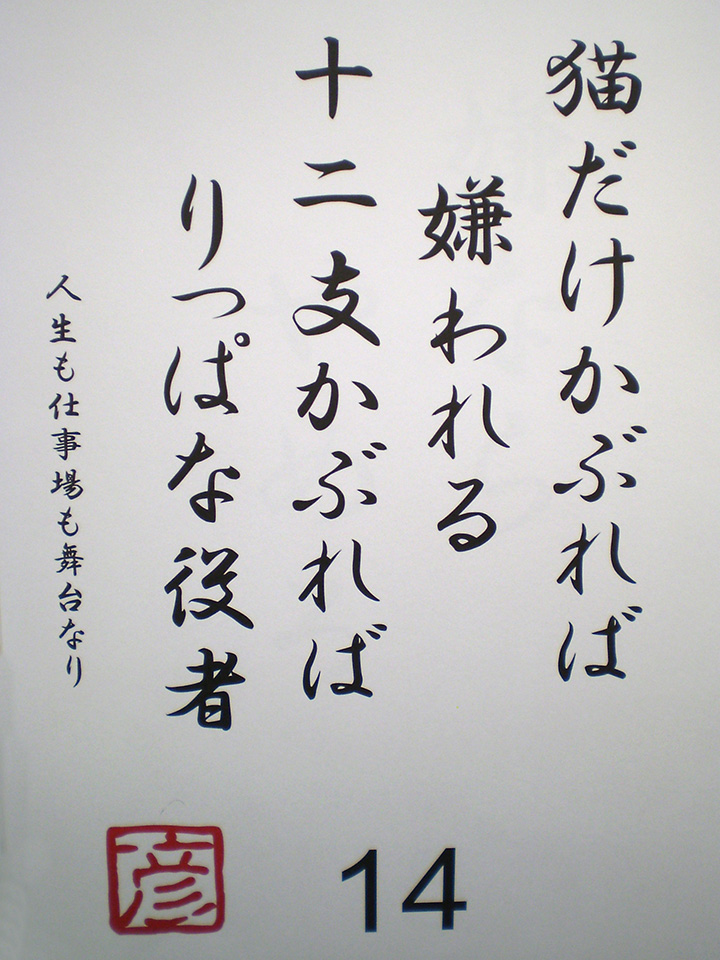 猫だけかぶれば
嫌われる
十二支かぶれば
りっぱな役者
人生も仕事場も舞台なり
彦
14